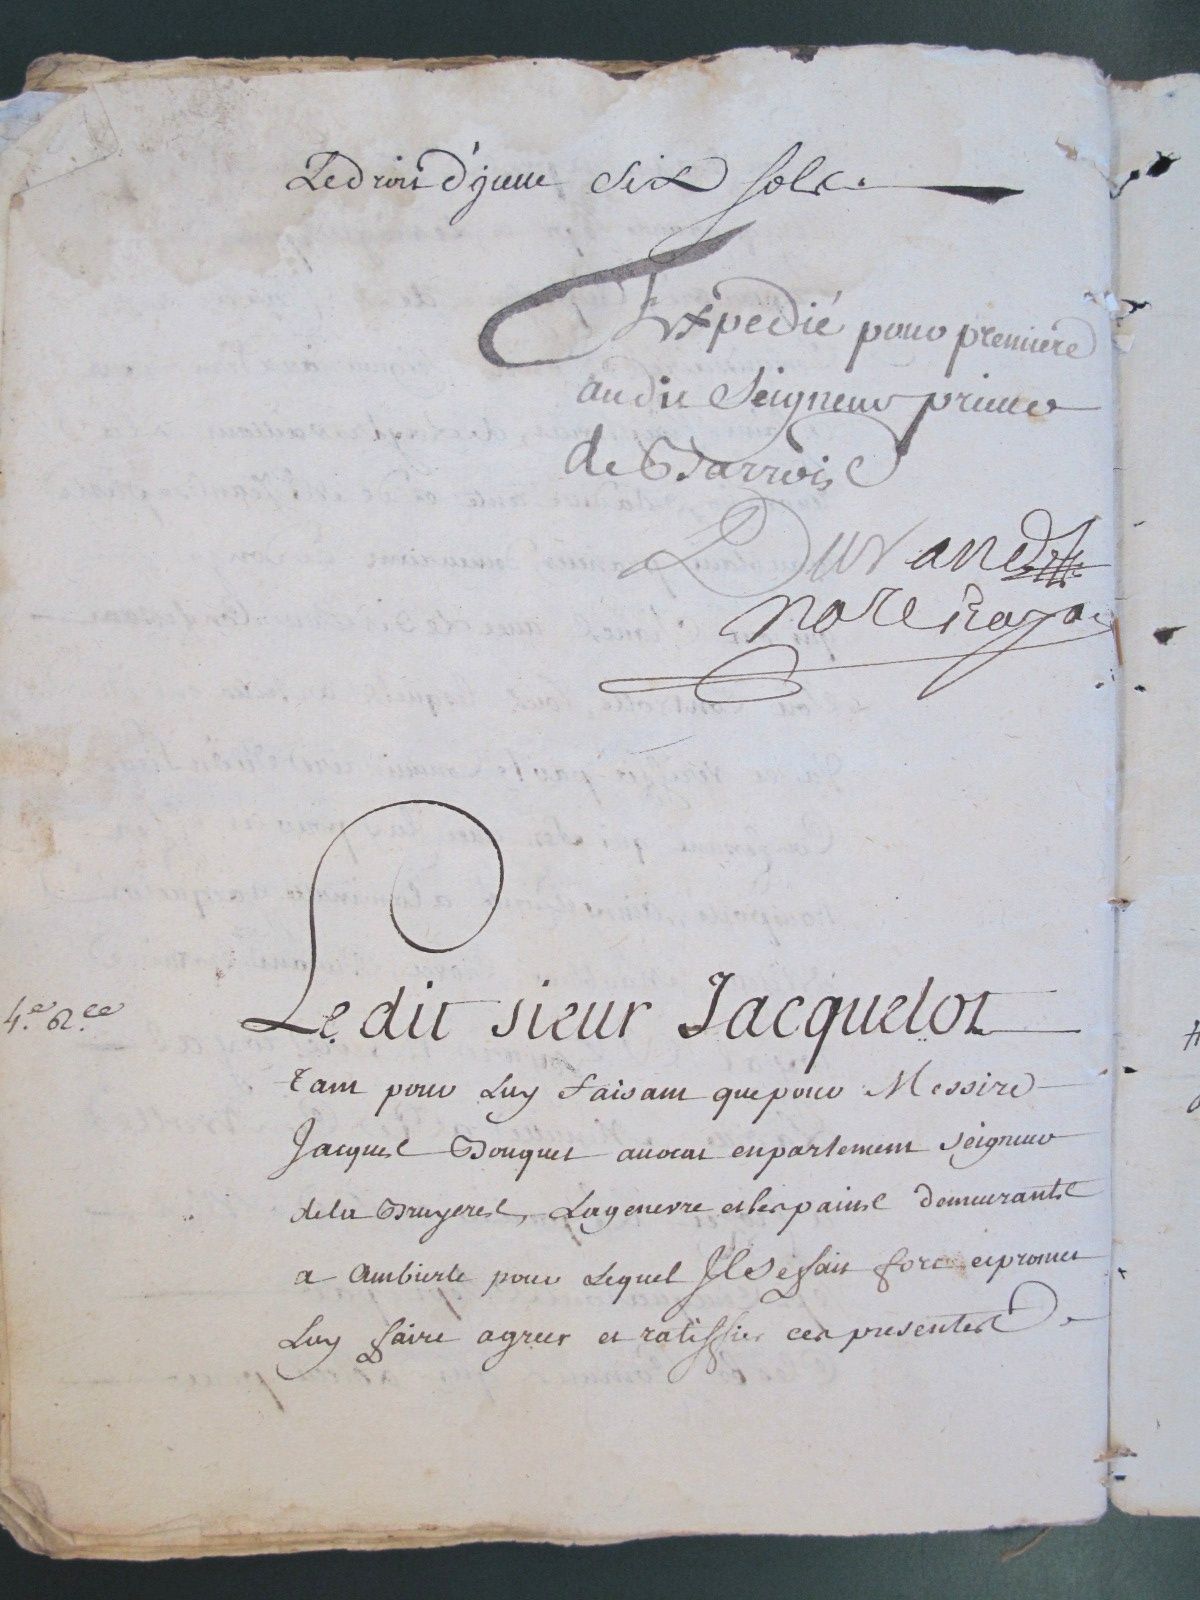 Le droit d'jcelle six sols.
Expedié pour premiere
audit Seigneur prince
de Barrois
Durand
No.re Royal
4.e R.ce
Le dit sieur Jacquelot
tant pour Luy faisant que pour Messire
Jacques Bouquet auocat en parlement Seigneur
de la Bruyeres, Lagenevre et les pains demeurants
a Ambierle pour Lequel Jl se fait fort et promet
Luy faire agreer et ratiffier ces presentes